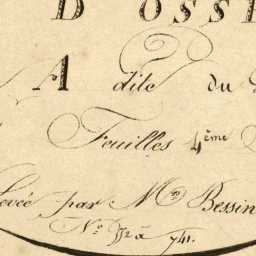 D OSSE
A dite du
Feuilles 4ème
Levée par Mr Bessin
No à 741.